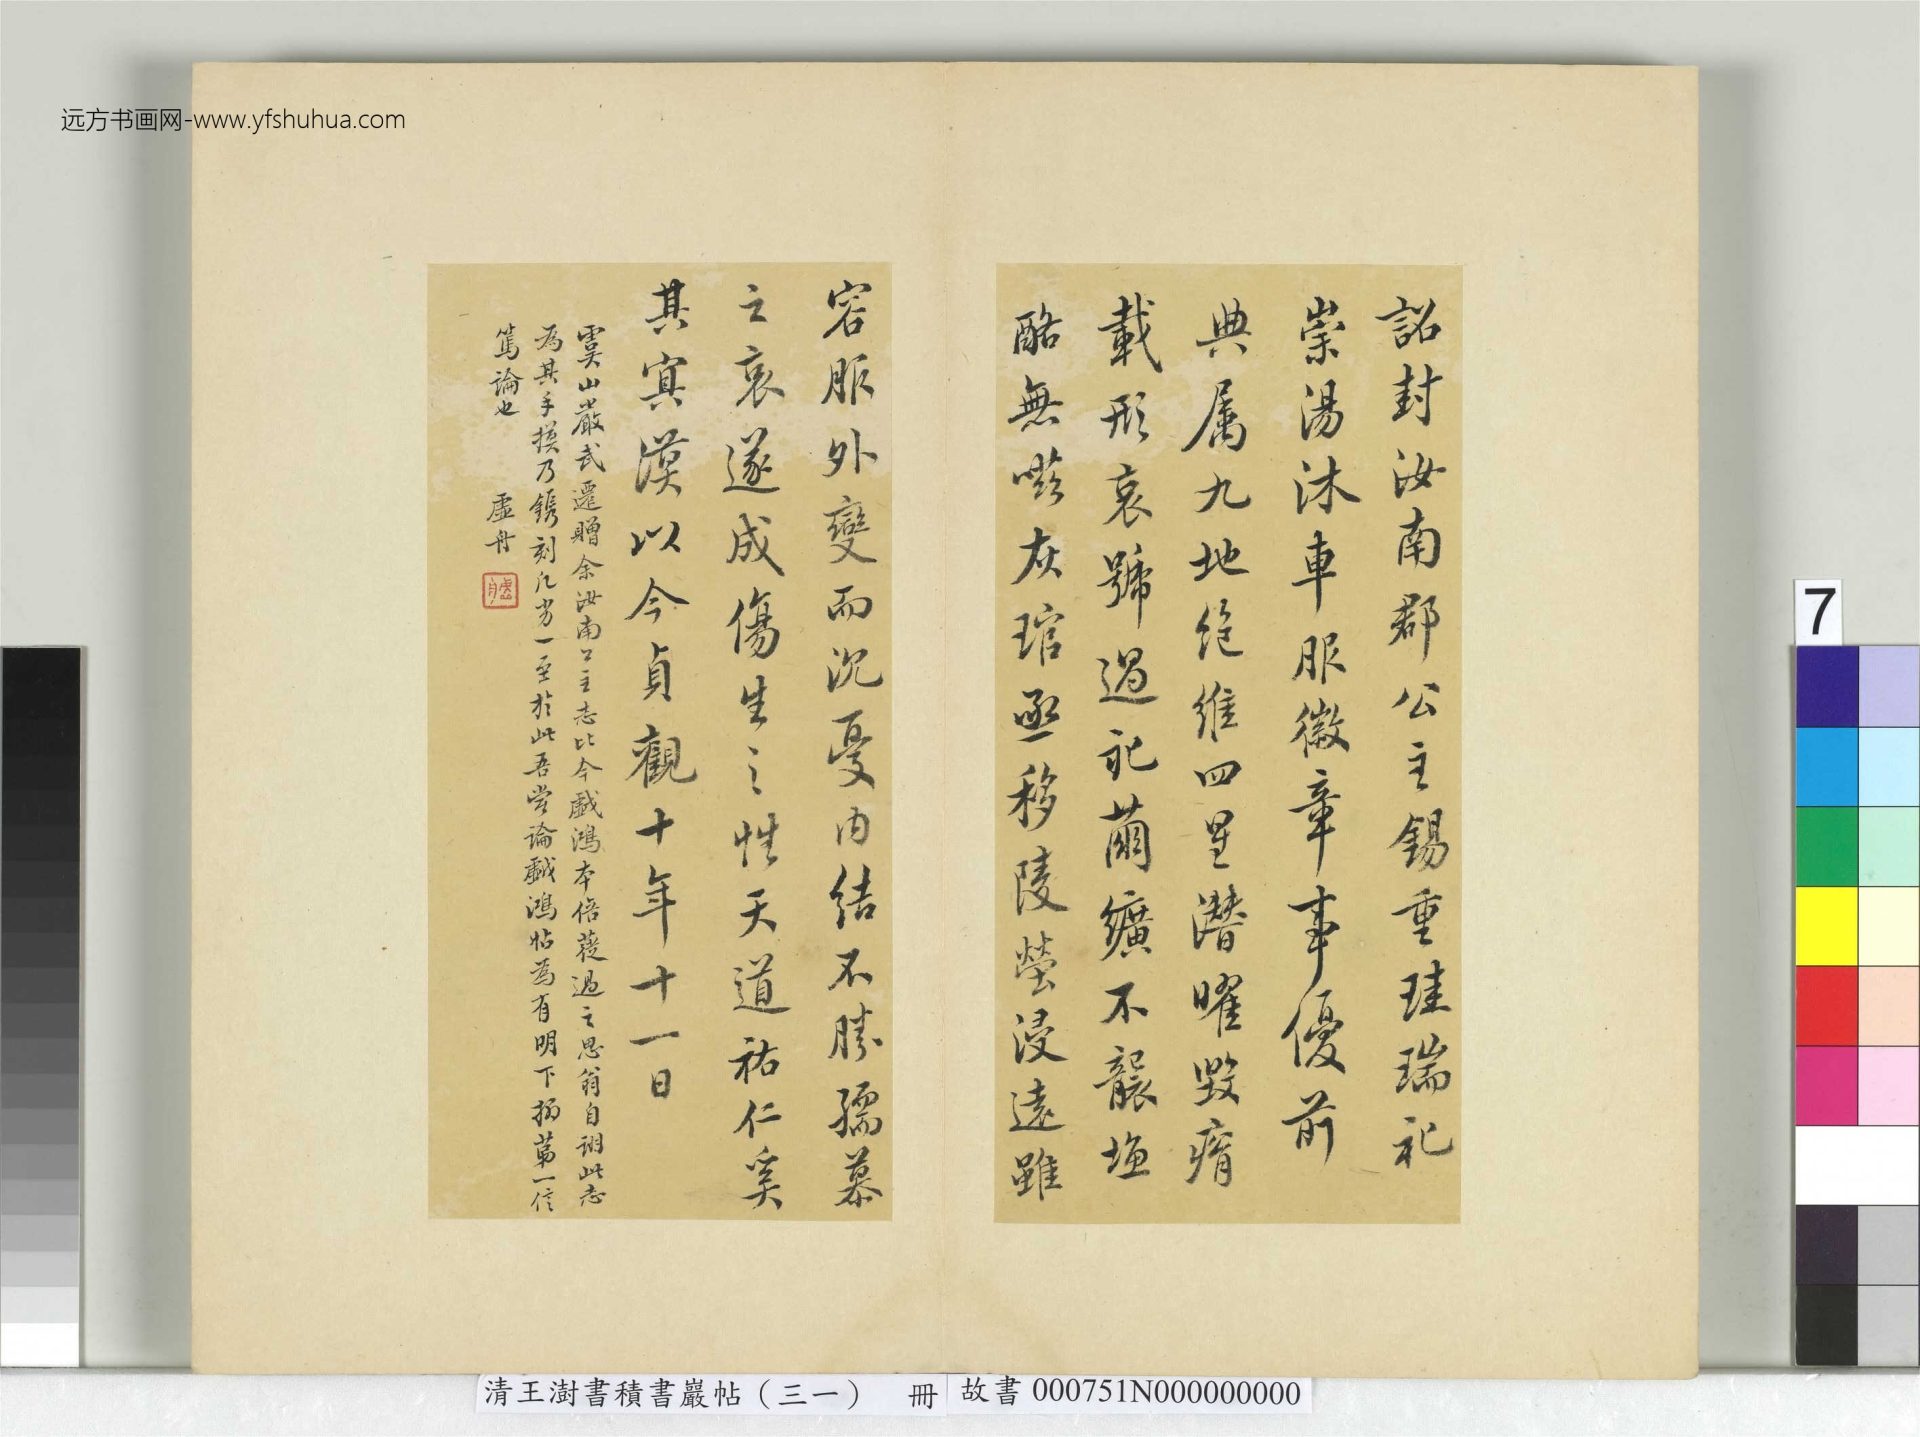 远方书画网-www.yfshuhua.com
詔封汝南郡公主錫重珪瑞礼
崇湯沐車服徽章事優前
典属九地绝維四星潛曜毀瘠
載形哀號過礼繭纊不襲塩
酪無嗞灰琯亟移陵塋浸遠雖
容服外變而沉憂内結不勝孺慕
之哀遂成傷生之性天道祐仁奚
其寘漠以今貞觀十年十一日
虞山嚴武遷贈余汝南公主志比今戲鴻本倍蓰過之思翁自謂此志
為其手摸乃鐫刻凡劣一至於此吾嘗論戲鴻帖為有明下搨第一信
篤論也
虛舟
7
清王澍書積書巖帖（三一） 冊 故書 000751N000000000